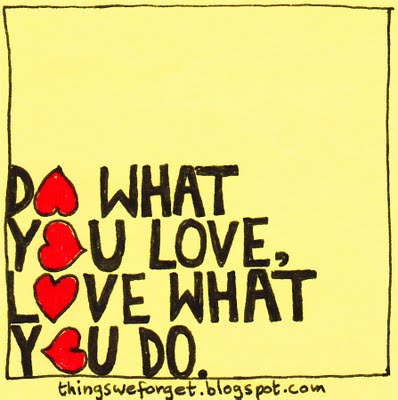 DO WHAT
YOU LOVE,
LOVE WHAT
YOU DO.
thingsweforget.blogspot.com